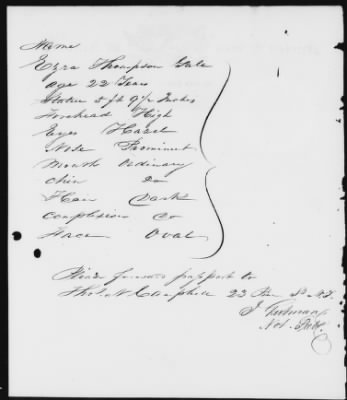 Name
Ezra Thompson Gale
Age 22 Years
Stature 5 ft 9 1/2 Inches
Forehead High
Eyes Hazel
Nose Prominent
Mouth Ordinary
Chin Do
Hair Dark
Complexion Do
Face Oval
Please forward passport to
Thos. N. Campbell 23 St N.Y.
J.
Not. Pub.